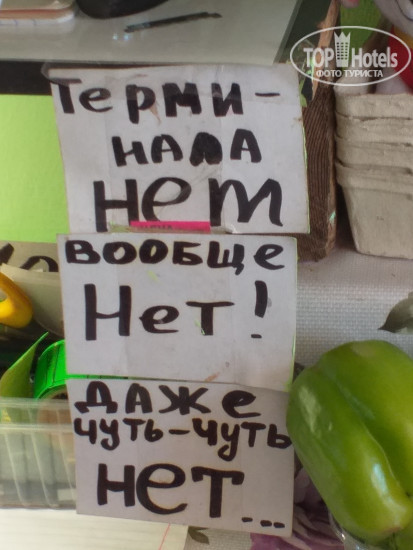 TOP Hotels
ФОТО ТУРИСТА
Терми-
нала
нет
вообще
Нет!
даже
чуть-чуть
нет...